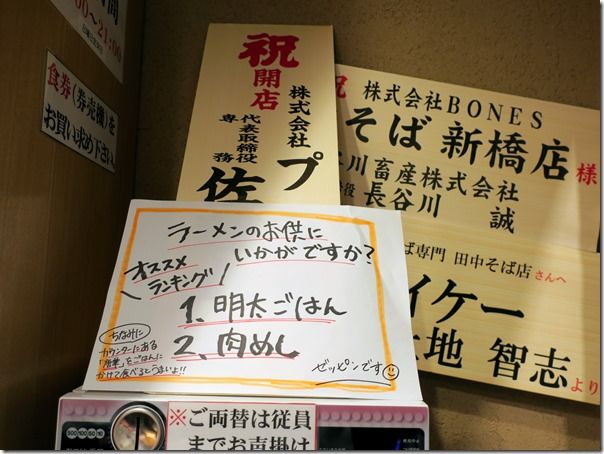 時間
00〜21:00
食券(券売機)を
お買い求め下さい。
祝
開店
株式会社プ
代表取締役
専務
佐
祝
株式会社BONES
そば 新橋店様
川畜産株式会社
役 長谷川 誠
ば専門 田中そば店さんへ
イケー
大地 智志より
ラーメンのお供に
いかがですか?
オススメ
ランキング!
1、明太ごはん
2、肉めし
ちなみに
カウンターにある
「唐華」をごはんに
かけて食べるとうまいよ!!
ゼッピンです
※ご両替は従業員
までお声掛け